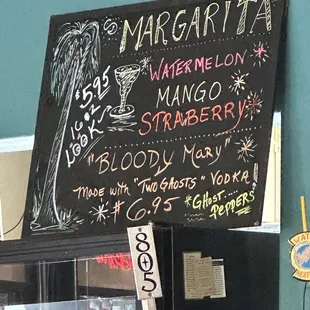 MARGARITA
$5.95
16 oz
LOOK
WATERMELON
MANGO
STRABERRY
"BLOODY MARY"
MADE WITH "TWO GHOSTS" VODKA!
$6.95 *GHOST....
PEPPERS
805